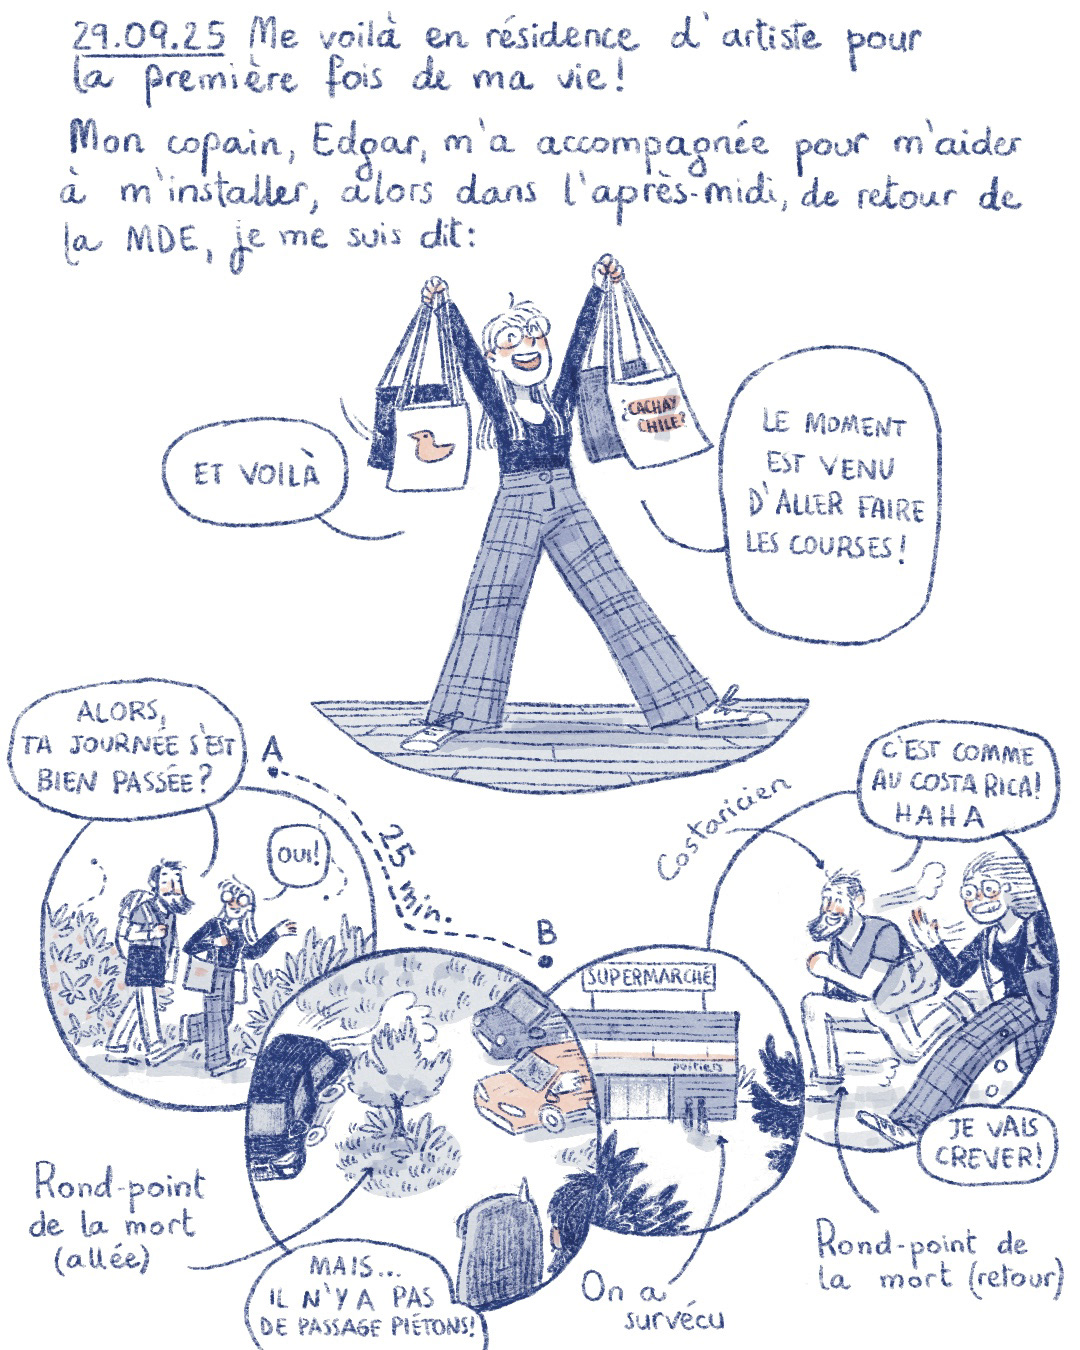 29.09.25 Me voilà en résidence d'artiste pour
la première fois de ma vie!
Mon copain, Edgar, m'a accompagnée pour m'aider
à m'installer, alors dans l'après-midi, de retour de
la MDE, je me suis dit:
ET VOILÀ
¿CACHAY
CHILE?
LE MOMENT
EST VENU
D'ALLER FAIRE
LES COURSES!
ALORS,
TA JOURNÉE S'EST
BIEN PASSÉE?
OUI!
A
25 min.
B
Costaricien
C'EST COMME
AU COSTA RICA!
HAHA
SUPERMARCHÉ
poitiers
JE VAIS
CREVER!
Rond-point
de la mort
(allée)
MAIS...
IL N'Y A PAS
DE PASSAGE PIÉTONS!
On a
survécu
Rond-point de
la mort (retour)